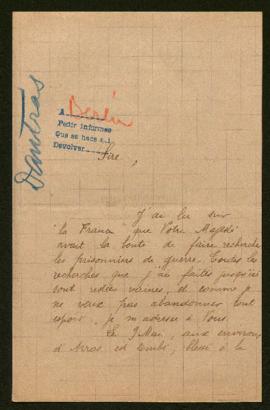 Dautras
A Berlin
Pedir informes
Que se hace a.i
Devolver
Sire,
J'ai lu sur
"la France" que Votre Majesté
avait la bonté de faire rechercher
les prisonniers de guerre. Toutes les
recherches que j'ai faites jusqu'ici
sont restées vaines, et comme je
ne veux pas abandonner tout
espoir, je m'adresse à Vous.
Le 9 Mai, aux environs
d'Arras est tombé, blessé à la